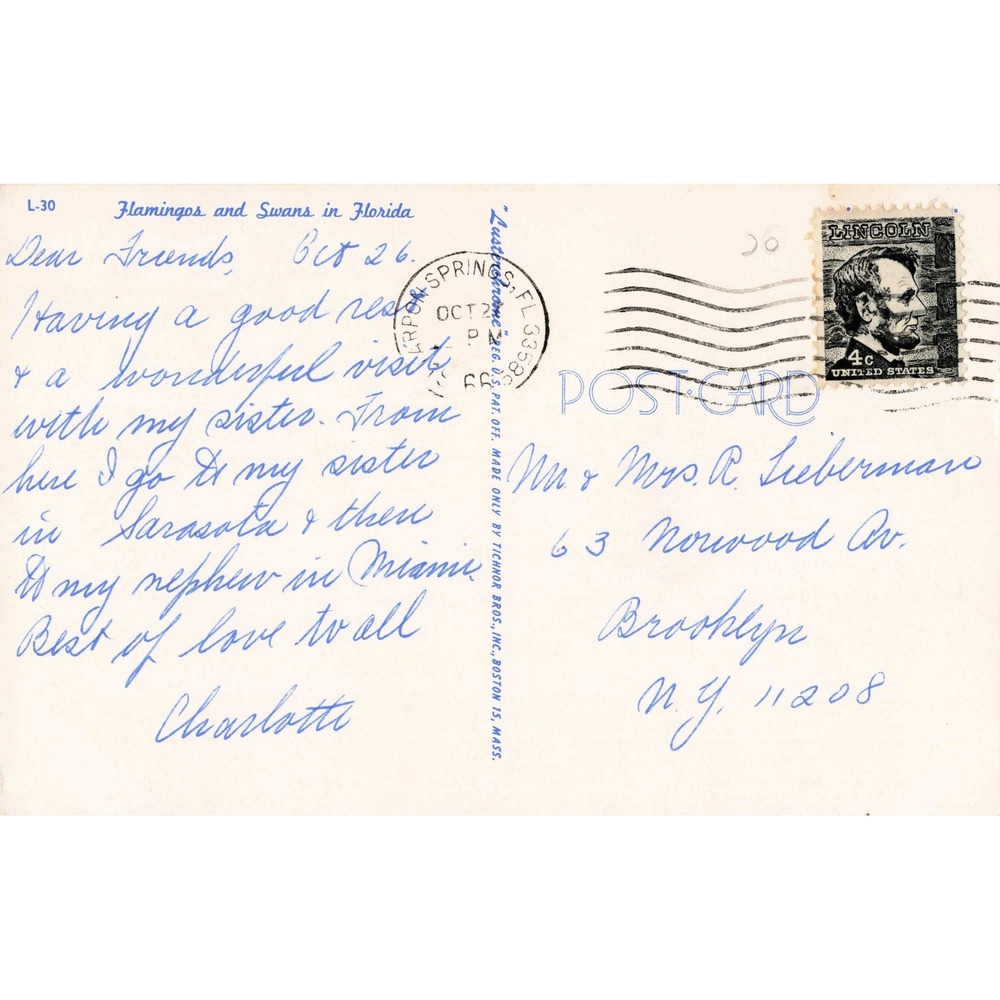 L-30 Flamingos and Swans in Florida
Dear Friends, Oct 26.
Having a good rest
& a wonderful visit
with my sister. From
here I go to my sister
in Sarasota & then
to my nephew in Miami.
Best of love to all
Charlotte
"Lusterchrome" REG. U.S. PAT. OFF. MADE ONLY BY TICHNOR BROS., INC., BOSTON 15, MASS.
SPRINGS, FL 33589
OCT 2
PM
66
20
LINCOLN
4c
UNITED STATES
POST CARD
Mr. & Mrs. R. Lieberman
63 Norwood Av.
Brooklyn
N.Y. 11208